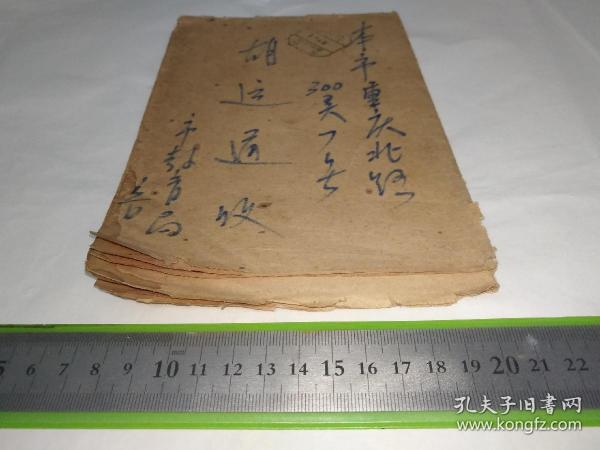 本市重庆北路
300弄7号
胡运道收
市教育局
5 6 7 8 9 10 11 12 13 14 15 16 17 18 19 20 21 22
mm
孔夫子旧书网
www.kongfz.com